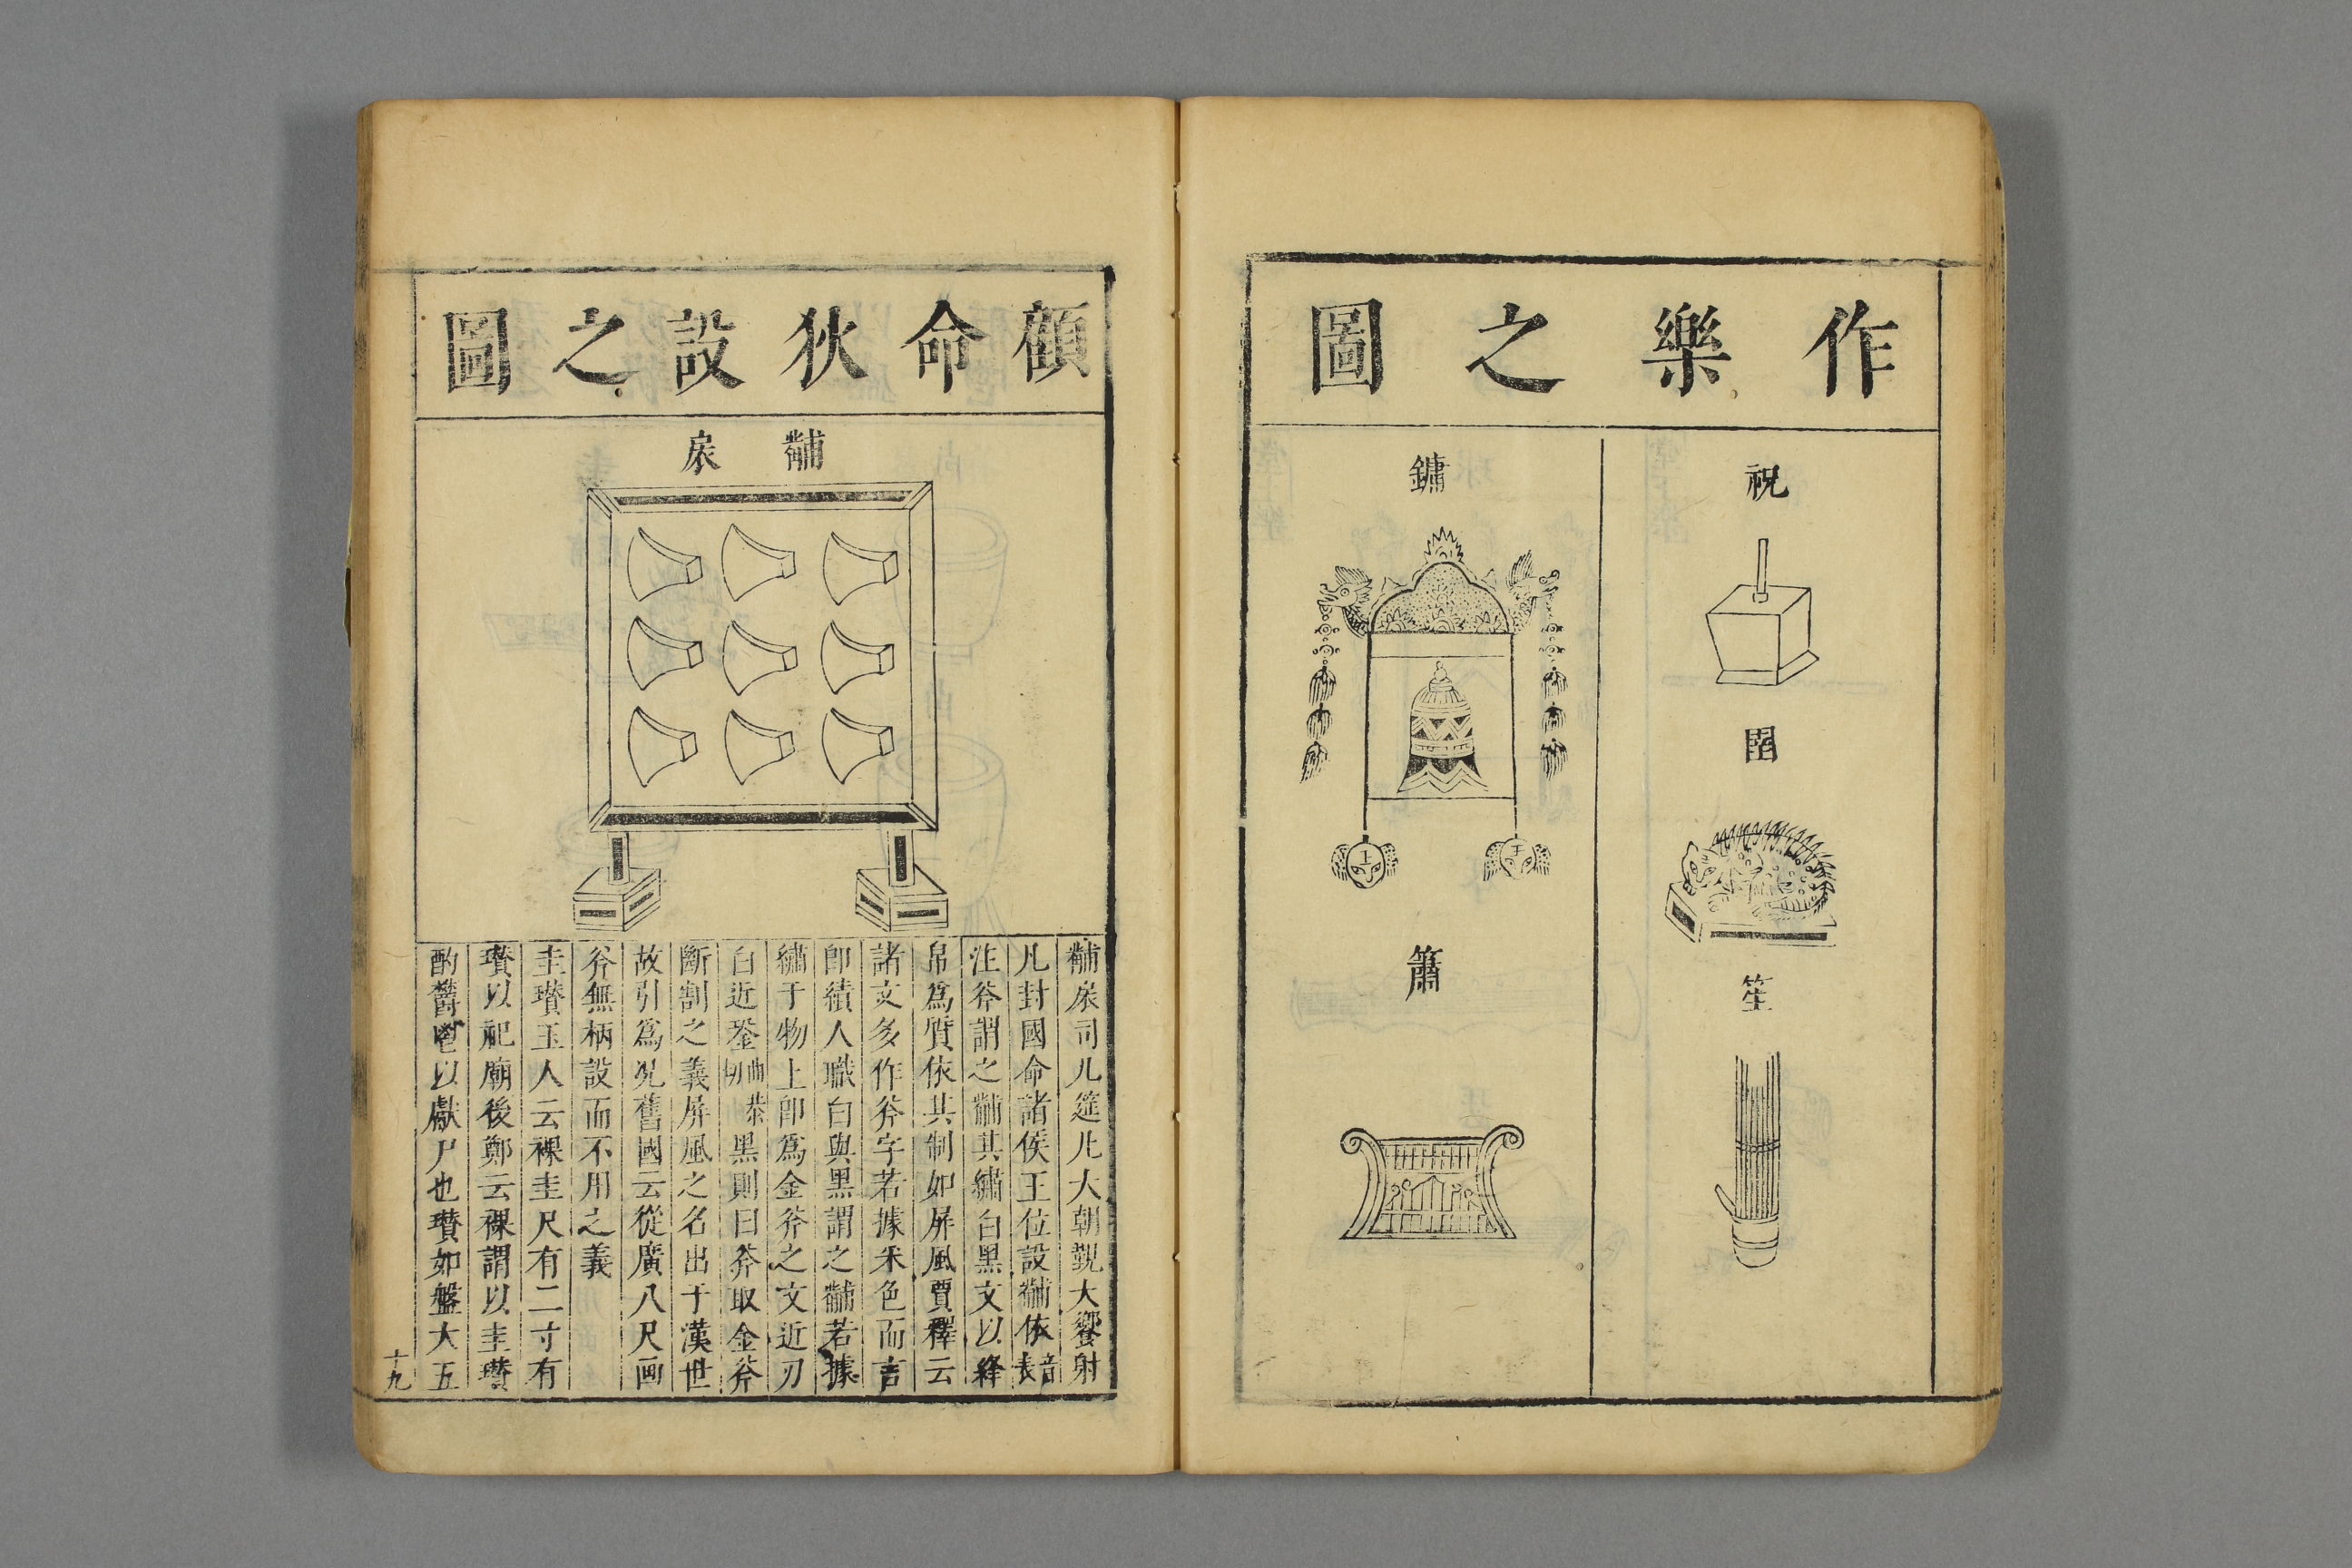 作樂之圖
祝
圉
笙
鏞
簫
顧命狄設之圖
黼扆
黼扆司几筵凡大朝覲大饗射
凡封國命諸侯王位設黼依音長
注斧謂之黼其繡白黑文以絳
帛爲質依其制如屏風賈釋云
諸文多作斧字若據采色而言
即繢人職白與黑謂之黼若據
繡于物上即爲金斧之文近刃
白近銎曲恭切黑則曰斧取金斧
斷割之義屏風之名出于漢世
故引爲況舊圖云從廣八尺画
斧無柄設而不用之義
圭瓚玉人云祼圭尺有二寸有
瓚以祀廟後鄭云祼謂以圭瓚
酌鬱鬯以獻尸也瓚如盤大五
十九